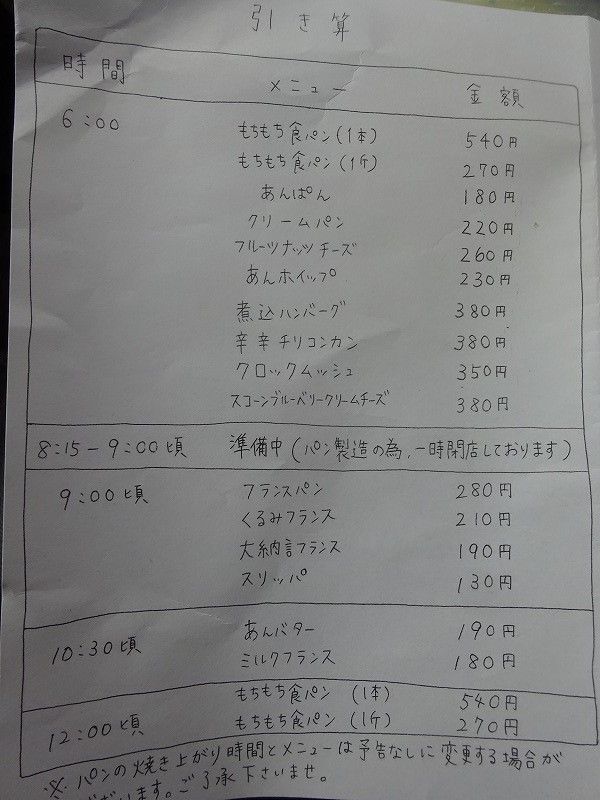 引き算
時間 メニュー 金額
6:00 もちもち食パン(1本) 540円
もちもち食パン(1斤) 270円
あんぱん 180円
クリームパン 220円
フルーツナッツチーズ 260円
あんホイップ 230円
煮込ハンバーグ 380円
辛辛チリコンカン 380円
クロックムッシュ 350円
スコーンブルーベリークリームチーズ 380円
8:15-9:00頃 準備中(パン製造の為、一時閉店しております)
9:00頃 フランスパン 280円
くるみフランス 210円
大納言フランス 190円
スリッパ 130円
10:30頃 あんバター 190円
ミルクフランス 180円
もちもち食パン (1本) 540円
12:00頃 もちもち食パン (1斤) 270円
※パンの焼き上がり時間とメニューは予告なしに変更する場合が
ございます。ご了承下さいませ。